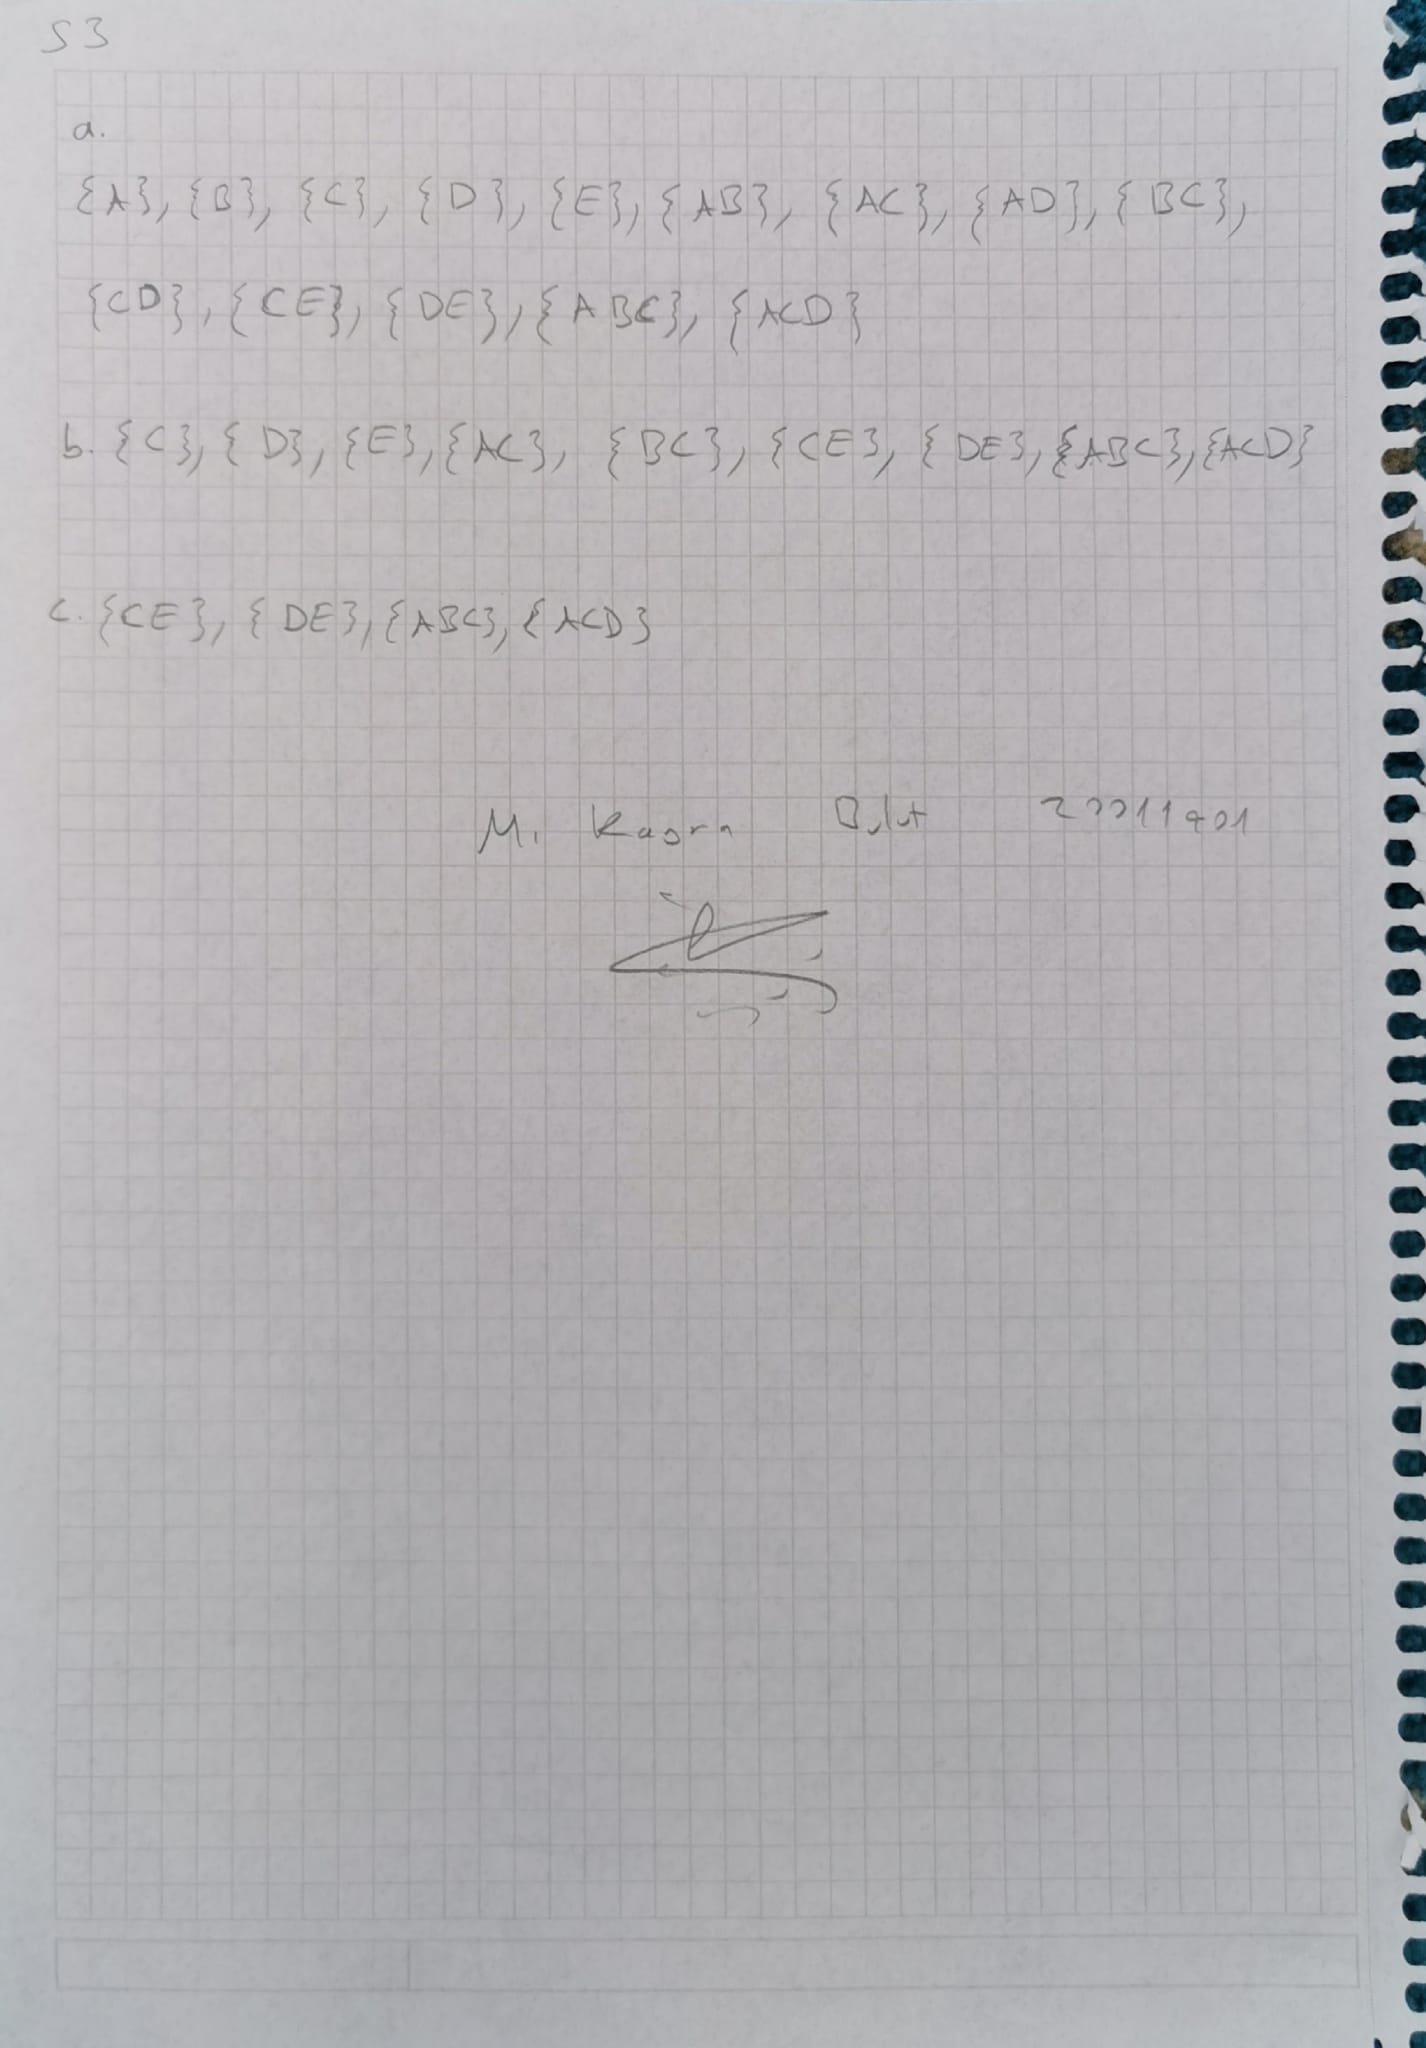 S3
a.
{A}, {B}, {C}, {D}, {E}, {AB}, {AC}, {AD}, {BC},
{CD}, {CE}, {DE}, {ABC}, {ACD}
b. {C}, {D}, {E}, {AC}, {BC}, {CE}, {DE}, {ABC}, {ACD}
c. {CE}, {DE}, {ABC}, {ACD}
M. Kagra Bulut